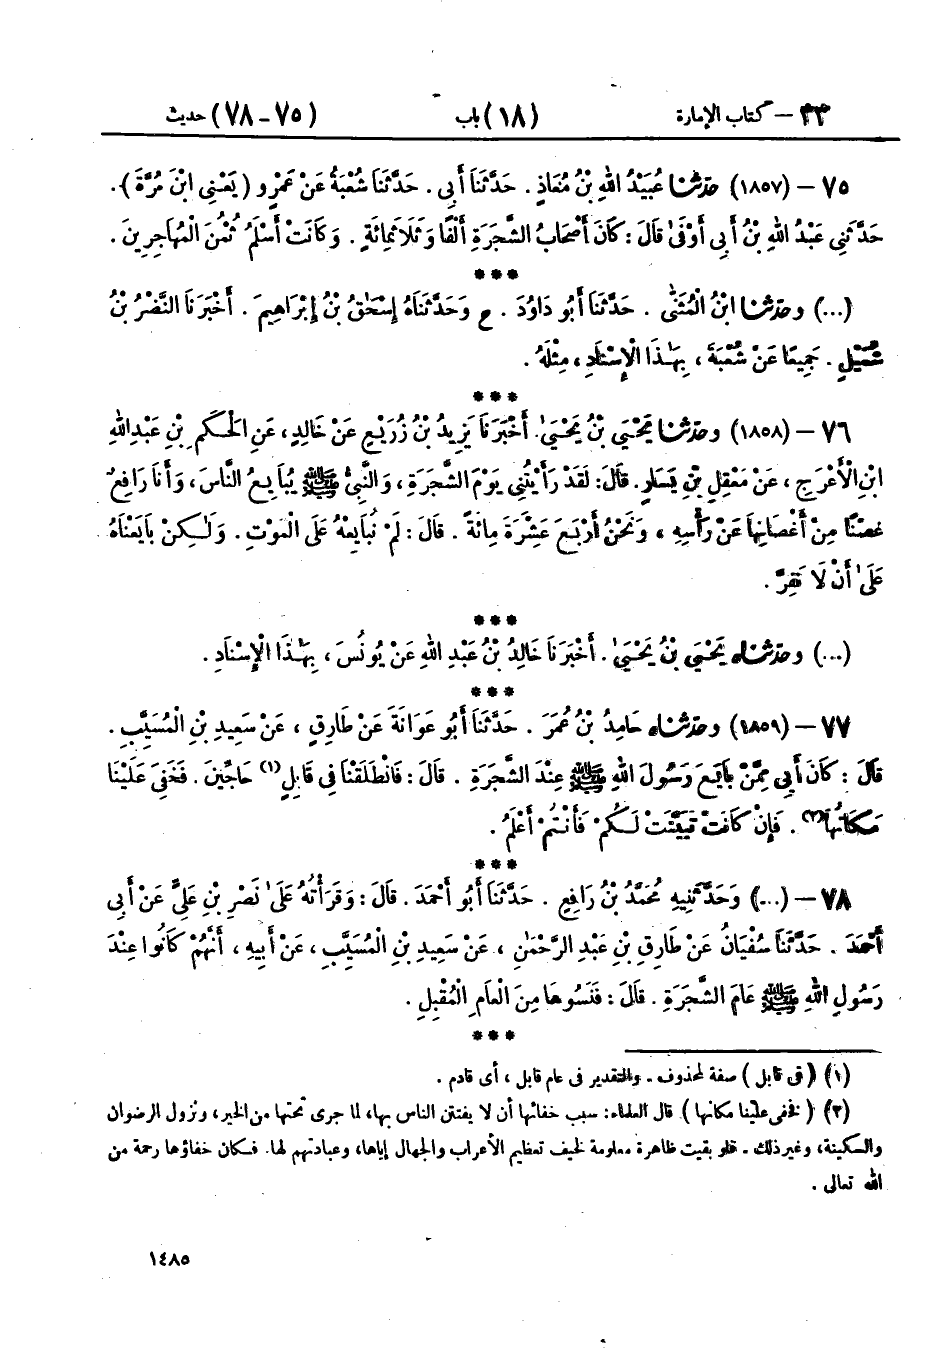 ٣٣ – كتاب الإمارة (١٨) باب (٧٥ – ٧٨) حديث
٧٥ – (١٨٥٧) حدثنا عُبَيْدُ اللهِ بْنُ مُعَاذٍ . حَدَّثَنَا أَبِي . حَدَّثَنَا شُعْبَةُ عَنْ عَمْرٍو ( يَعْنِي ابْنَ مُرَّةَ ) .
حَدَّثَنِي عَبْدُ اللهِ بْنُ أَبِي أَوْفَىٰ قَالَ : كَانَ أَصْحَابُ الشَّجَرَةِ أَلْفًا وَثَلَاثَمِائَةٍ . وَكَانَتْ أَسْلَمُ ثُمُنَ الْمُهَاجِرِينَ .
***
(...) وحدثنا ابْنُ الْمُثَنَّىٰ . حَدَّثَنَا أَبُو دَاوُدَ . ح وَحَدَّثَنَاهُ إِسْحَاقُ بْنُ إِبْرَاهِيمَ . أَخْبَرَنَا النَّضْرُ بْنُ
شُمَيْلٍ . جَمِيعًا عَنْ شُعْبَةَ ، بِهَٰذَا الْإِسْنَادِ ، مِثْلَهُ .
***
٧٦ – (١٨٥٨) وحدثنا يَحْيَىٰ بْنُ يَحْيَىٰ . أَخْبَرَنَا يَزِيدُ بْنُ زُرَيْعٍ عَنْ خَالِدٍ ، عَنِ الْحَكَمِ بْنِ عَبْدِ اللهِ
ابْنِ الْأَعْرَجِ ، عَنْ مَعْقِلِ بْنِ يَسَارٍ . قَالَ : لَقَدْ رَأَيْتُنِي يَوْمَ الشَّجَرَةِ ، وَالنَّبِيُّ ﷺ يُبَايِعُ النَّاسَ ، وَأَنَا رَافِعٌ
غُصْنًا مِنْ أَغْصَانِهَا عَنْ رَأْسِهِ ، وَنَحْنُ أَرْبَعَ عَشْرَةَ مِائَةً . قَالَ : لَمْ نُبَايِعْهُ عَلَى الْمَوْتِ . وَلَٰكِنْ بَايَعْنَاهُ
عَلَىٰ أَنْ لَا نَفِرَّ .
***
(...) وحدثناه يَحْيَىٰ بْنُ يَحْيَىٰ . أَخْبَرَنَا خَالِدُ بْنُ عَبْدِ اللهِ عَنْ يُونُسَ ، بِهَٰذَا الْإِسْنَادِ .
***
٧٧ – (١٨٥٩) وحدثناه حَامِدُ بْنُ عُمَرَ . حَدَّثَنَا أَبُو عَوَانَةَ عَنْ طَارِقٍ ، عَنْ سَعِيدِ بْنِ الْمُسَيَّبِ .
قَالَ : كَانَ أَبِي مِمَّنْ بَايَعَ رَسُولَ اللهِ ﷺ عِنْدَ الشَّجَرَةِ . قَالَ : فَانْطَلَقْنَا فِي قَابِلٍ (١) حَاجِّينَ . فَخَفِيَ عَلَيْنَا
مَكَانُهَا (٢) . فَإِنْ كَانَتْ تَبَيَّنَتْ لَكُمْ فَأَنْتُمْ أَعْلَمُ .
***
٧٨ – (...) وَحَدَّثَنِيهِ مُحَمَّدُ بْنُ رَافِعٍ . حَدَّثَنَا أَبُو أَحْمَدَ . قَالَ : وَقَرَأْتُهُ عَلَىٰ نَصْرِ بْنِ عَلِيٍّ عَنْ أَبِي
أَحْمَدَ . حَدَّثَنَا سُفْيَانُ عَنْ طَارِقِ بْنِ عَبْدِ الرَّحْمَٰنِ ، عَنْ سَعِيدِ بْنِ الْمُسَيَّبِ ، عَنْ أَبِيهِ ، أَنَّهُمْ كَانُوا عِنْدَ
رَسُولِ اللهِ ﷺ عَامَ الشَّجَرَةِ . قَالَ : فَنَسُوهَا مِنَ الْعَامِ الْمُقْبِلِ .
***
(١) ( فى قابل ) صفة لمحذوف . والتقدير فى عام قابل ، أى قادم .
(٢) ( فخفى علينا مكانها ) قال العلماء : سبب خفائها أن لا يفتتن الناس بها ، لما جرى تحتها من الخير ، ونزول الرضوان
والسكينة ، وغير ذلك . فلو بقيت ظاهرة معلومة لخيف تعظيم الأعراب والجهال إياها ، وعبادتهم لها . فكان خفاؤها رحمة من
الله تعالى .
١٤٨٥